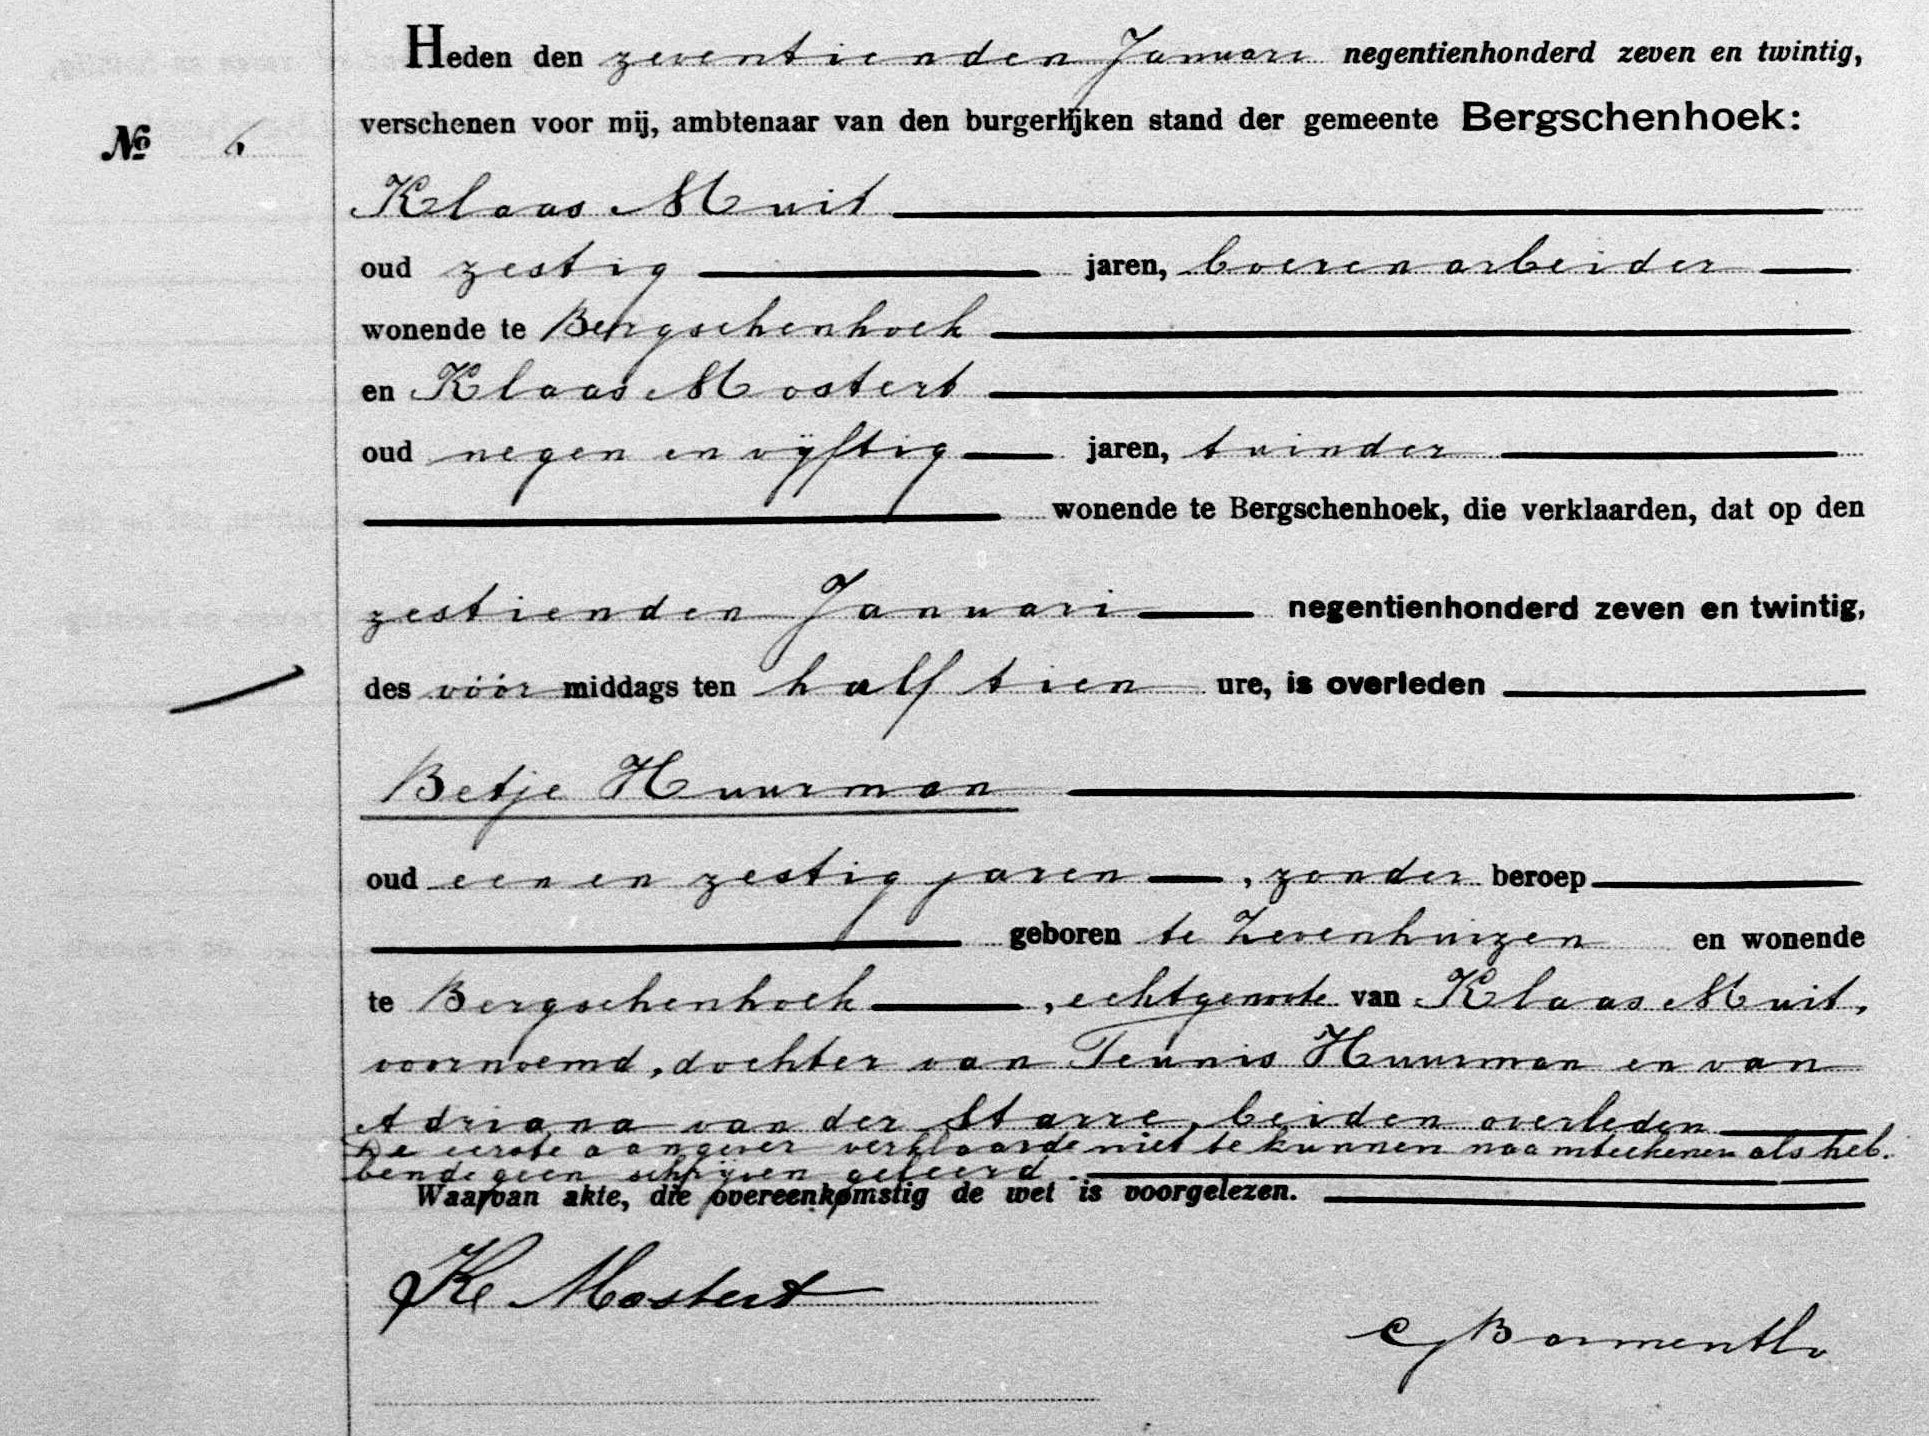 Heden den zeventienden Januari negentienhonderd zeven en twintig,
verschenen voor mij, ambtenaar van den burgerlijken stand der gemeente Bergschenhoek:
№ 6
Klaas Muit
oud zestig jaren, boerenarbeider
wonende te Bergschenhoek
en Klaas Mostert
oud negen en vijftig jaren, tuinder
wonende te Bergschenhoek, die verklaarden, dat op den
zestienden Januari negentienhonderd zeven en twintig,
des vóór middags ten half tien ure, is overleden
Betje Huurman
oud een en zestig jaren, zonder beroep
geboren te Zevenhuizen en wonende
te Bergschenhoek, echtgenoote van Klaas Muit,
voornoemd, dochter van Teunis Huurman en van
Adriana van der Starre, beiden overleden
De eerste aangever verklaarde niet te kunnen naamteekenen als heb-
bende geen schrijven geleerd.
Waarvan akte, die overeenkomstig de wet is voorgelezen.
Kl Mostert